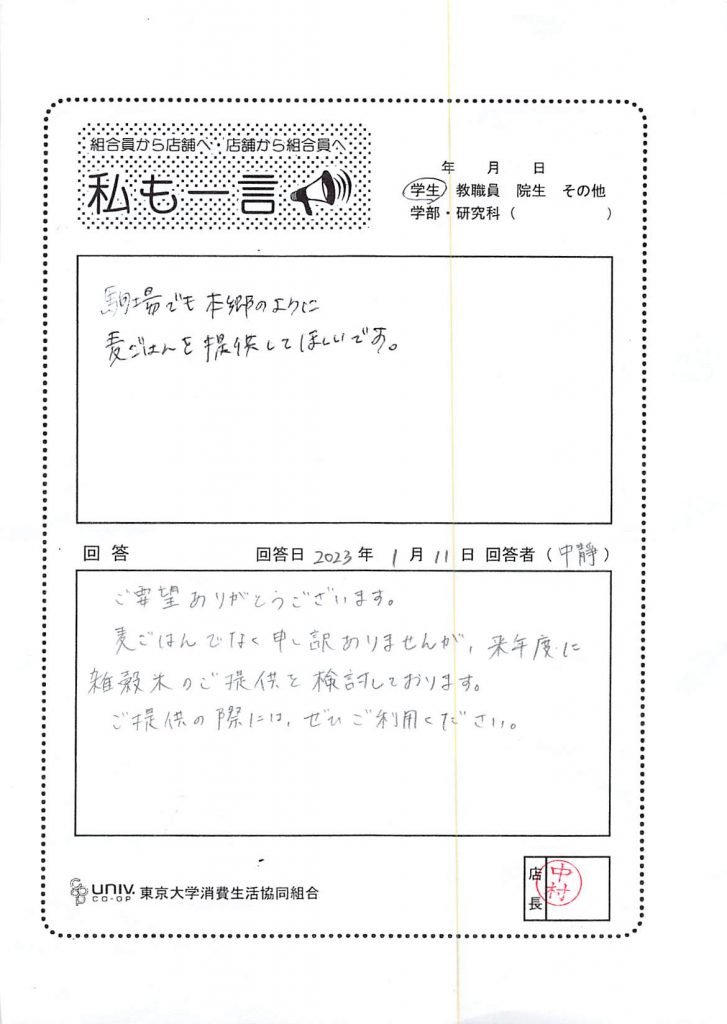 組合員から店舗へ・店舗から組合員へ
私も一言
年 月 日
学生 教職員 院生 その他
学部・研究科（ ）
駒場でも本郷のように
麦ごはんを提供してほしいです。
回答 回答日 2023年 1月 11日 回答者（中静）
ご要望ありがとうございます。
麦ごはんでなく申し訳ありませんが、来年度に
雑穀米のご提供を検討しております。
ご提供の際には、ぜひご利用ください。
UNIV. CO-OP 東京大学消費生活協同組合
店長 中村